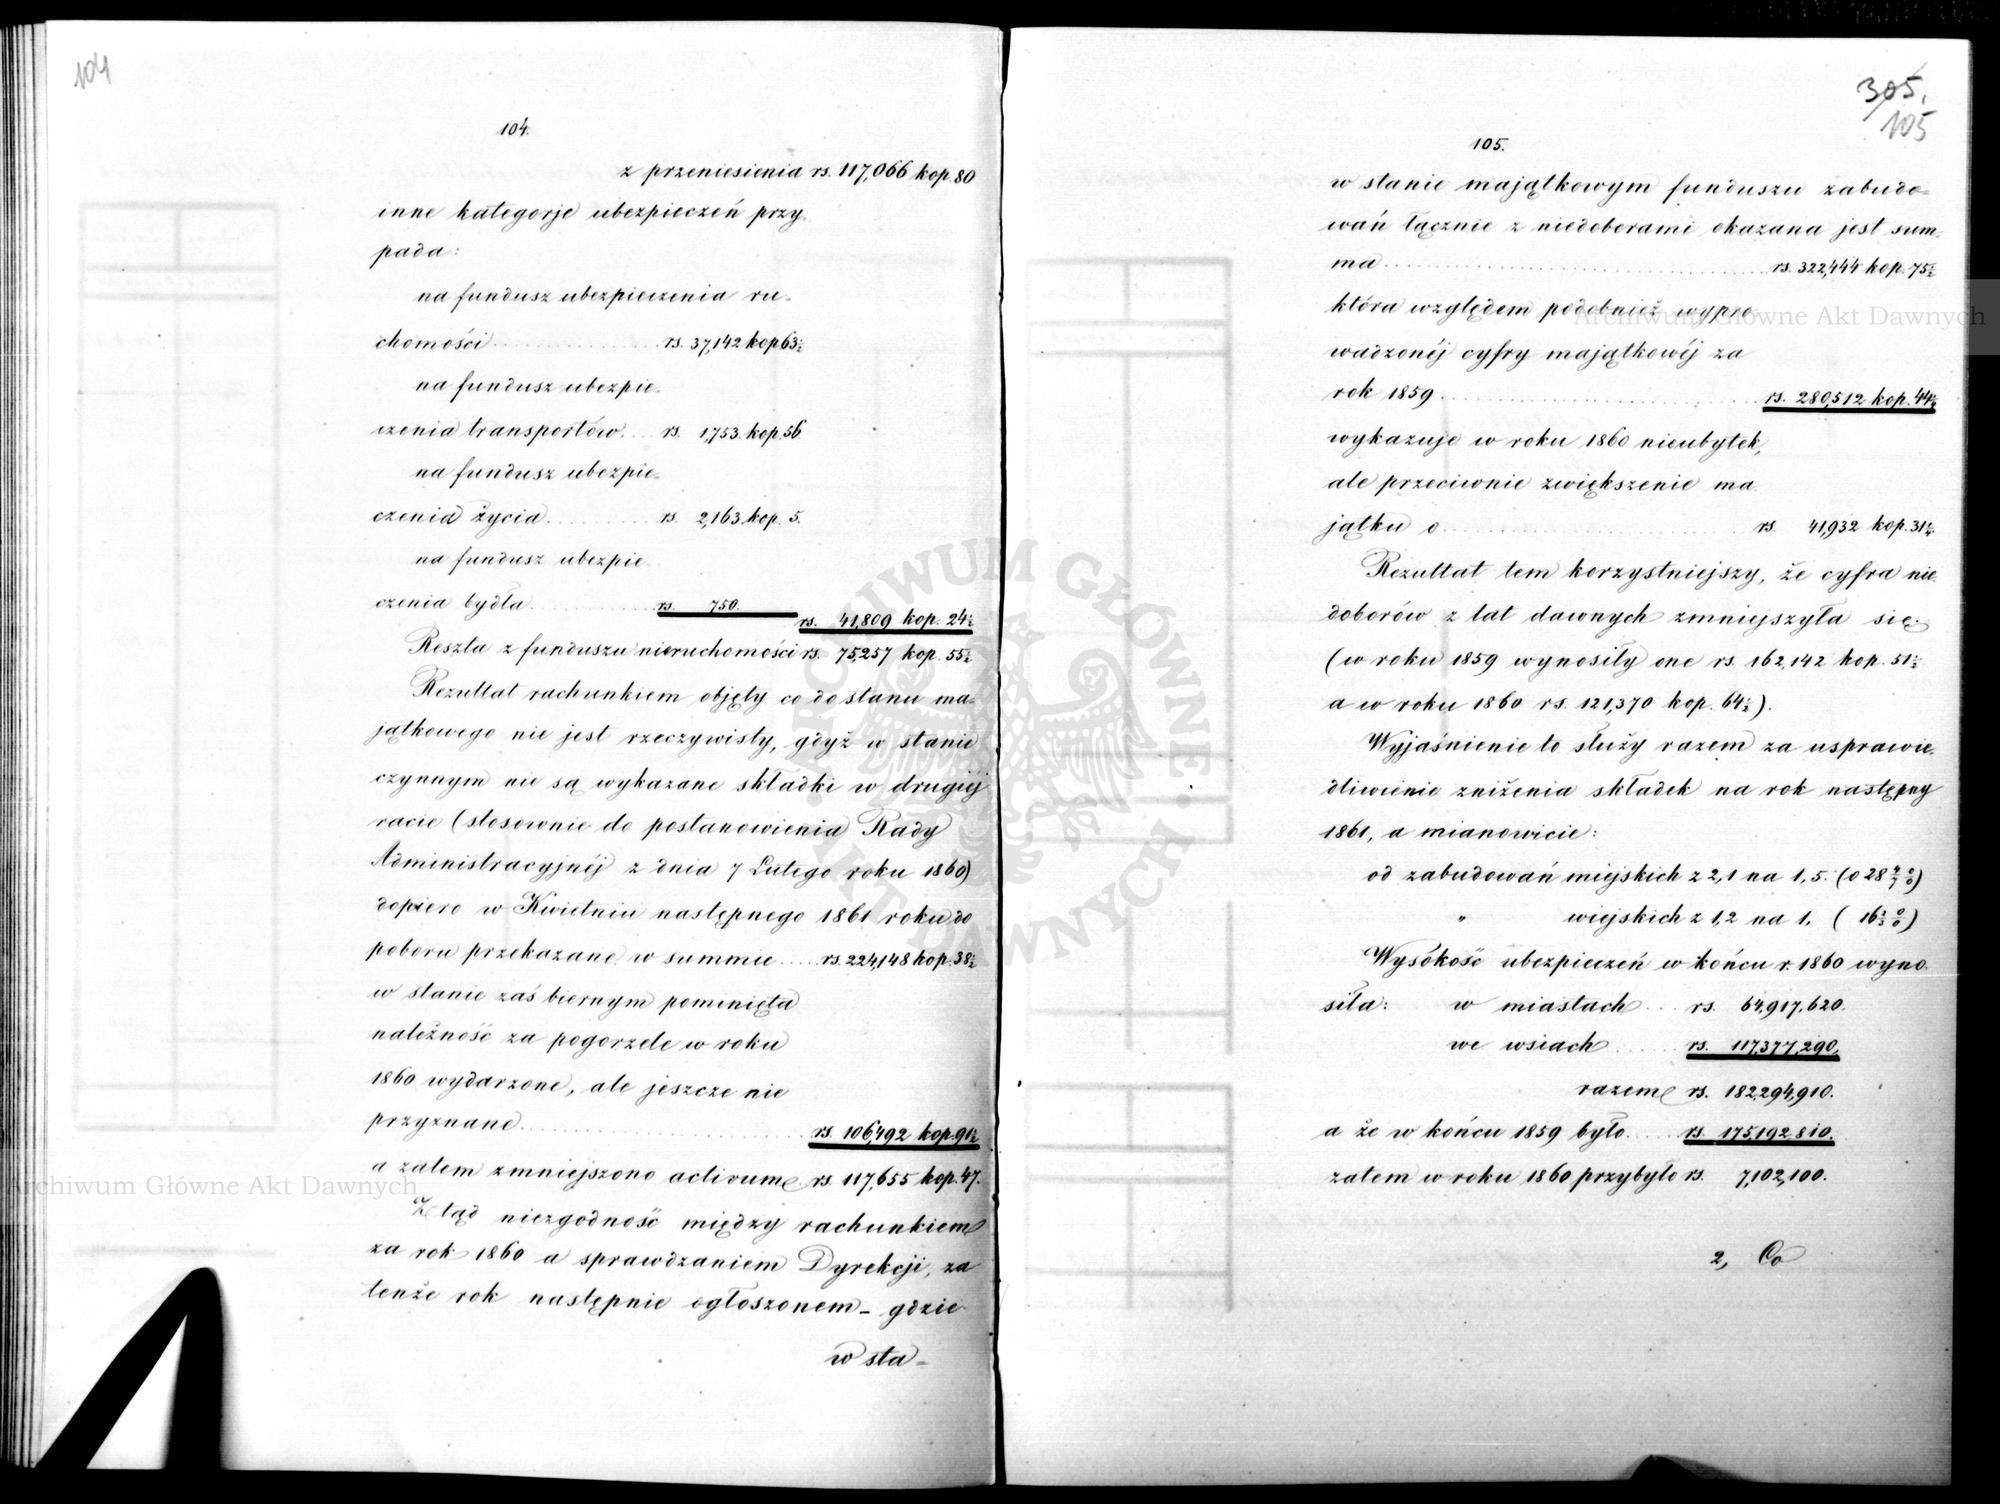 104
104.
z przeniesienia rs. 117,066 kop. 80
inne kategorje ubezpieczeń przy-
pada:
na fundusz ubezpieczenia ru-
chomości rs. 37,142 kop 63½
na fundusz ubezpie-
czenia transportów rs. 1,753. kop. 56
na fundusz ubezpie-
czenia życia rs. 2,163. kop. 5.
na fundusz ubezpie-
czenia bydła rs. 750.
rs. 41,809 kop. 24½
Reszta z funduszu nieruchomości rs. 75,257 kop. 55½
Rezultat rachunkiem objęty co do stanu ma-
jątkowego nie jest rzeczywisty, gdyż w stanie
czynnym nie są wykazane składki w drugiéj
racie (stosownie do postanowienia Rady
Administracyjnéj z dnia 7 Lutego roku 1860)
dopiero w Kwietniu następnego 1861 roku do
poboru przekazane w summie rs. 224,148 kop. 38½
w stanie zaś biernym pominięta
należność za pogorzele w roku
1860 wydarzone, ale jeszcze nie
przyznane rs. 106,492 kop. 91½
a zatem zmniejszono activum rs. 117,655 kop. 47.
Z tąd niezgodność między rachunkiem
za rok 1860 a sprawdzaniem Dyrekcji, za
tenże rok następnie ogłoszonem – gdzie
w sta-
305.
105
105.
w stanie majątkowym funduszu zabudo-
wań łącznie z niedoborami okazana jest sum-
ma rs. 322,444 kop. 75½
która względem podobnież wypro-
wadzonéj cyfry majątkowéj za
rok 1859 rs. 280,512 kop. 44½
wykazuje w roku 1860 nieubytek,
ale przeciwnie zwiększenie ma-
jątku o rs. 41,932 kop. 31½.
Rezultat tem korzystniejszy, że cyfra nie-
doborów z lat dawnych zmniejszyła się.
(w roku 1859 wynosiły one rs. 162,142 kop. 51½
a w roku 1860 rs. 121,370 kop. 64½).
Wyjaśnienie to służy razem za usprawie-
dliwienie zniżenia składek na rok następny
1861, a mianowicie:
od zabudowań miejskich z 2,1 na 1,5. (o 28 4/7 %)
" wiejskich z 1,2 na 1. ( 16 2/3 %)
Wysókość ubezpieczeń w końcu r. 1860 wyno-
siła: w miastach rs. 64,917,620.
we wsiach rs. 117,377,290.
razem rs. 182,294,910.
a że w końcu 1859 było rs. 175,192,810.
zatem w roku 1860 przybyło rs. 7,102,100.
2, Co
Archiwum Główne Akt Dawnych
Archiwum Główne Akt Dawnych
ARCHIWUM GŁÓWNE AKT DAWNYCH